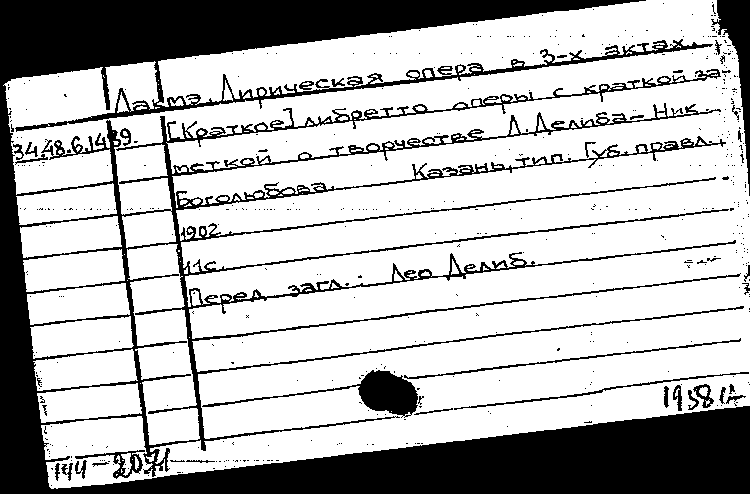 Лакмэ. Лирическая опера в 3-х актах.
34.48.6.1489. [Краткое] либретто оперы с краткой за-
меткой о творчестве Л. Делиба – Ник.
Боголюбова. Казань, тип. Губ. правл.,
1902.
11с.
Перед загл.: Лео Делиб.
144-2071